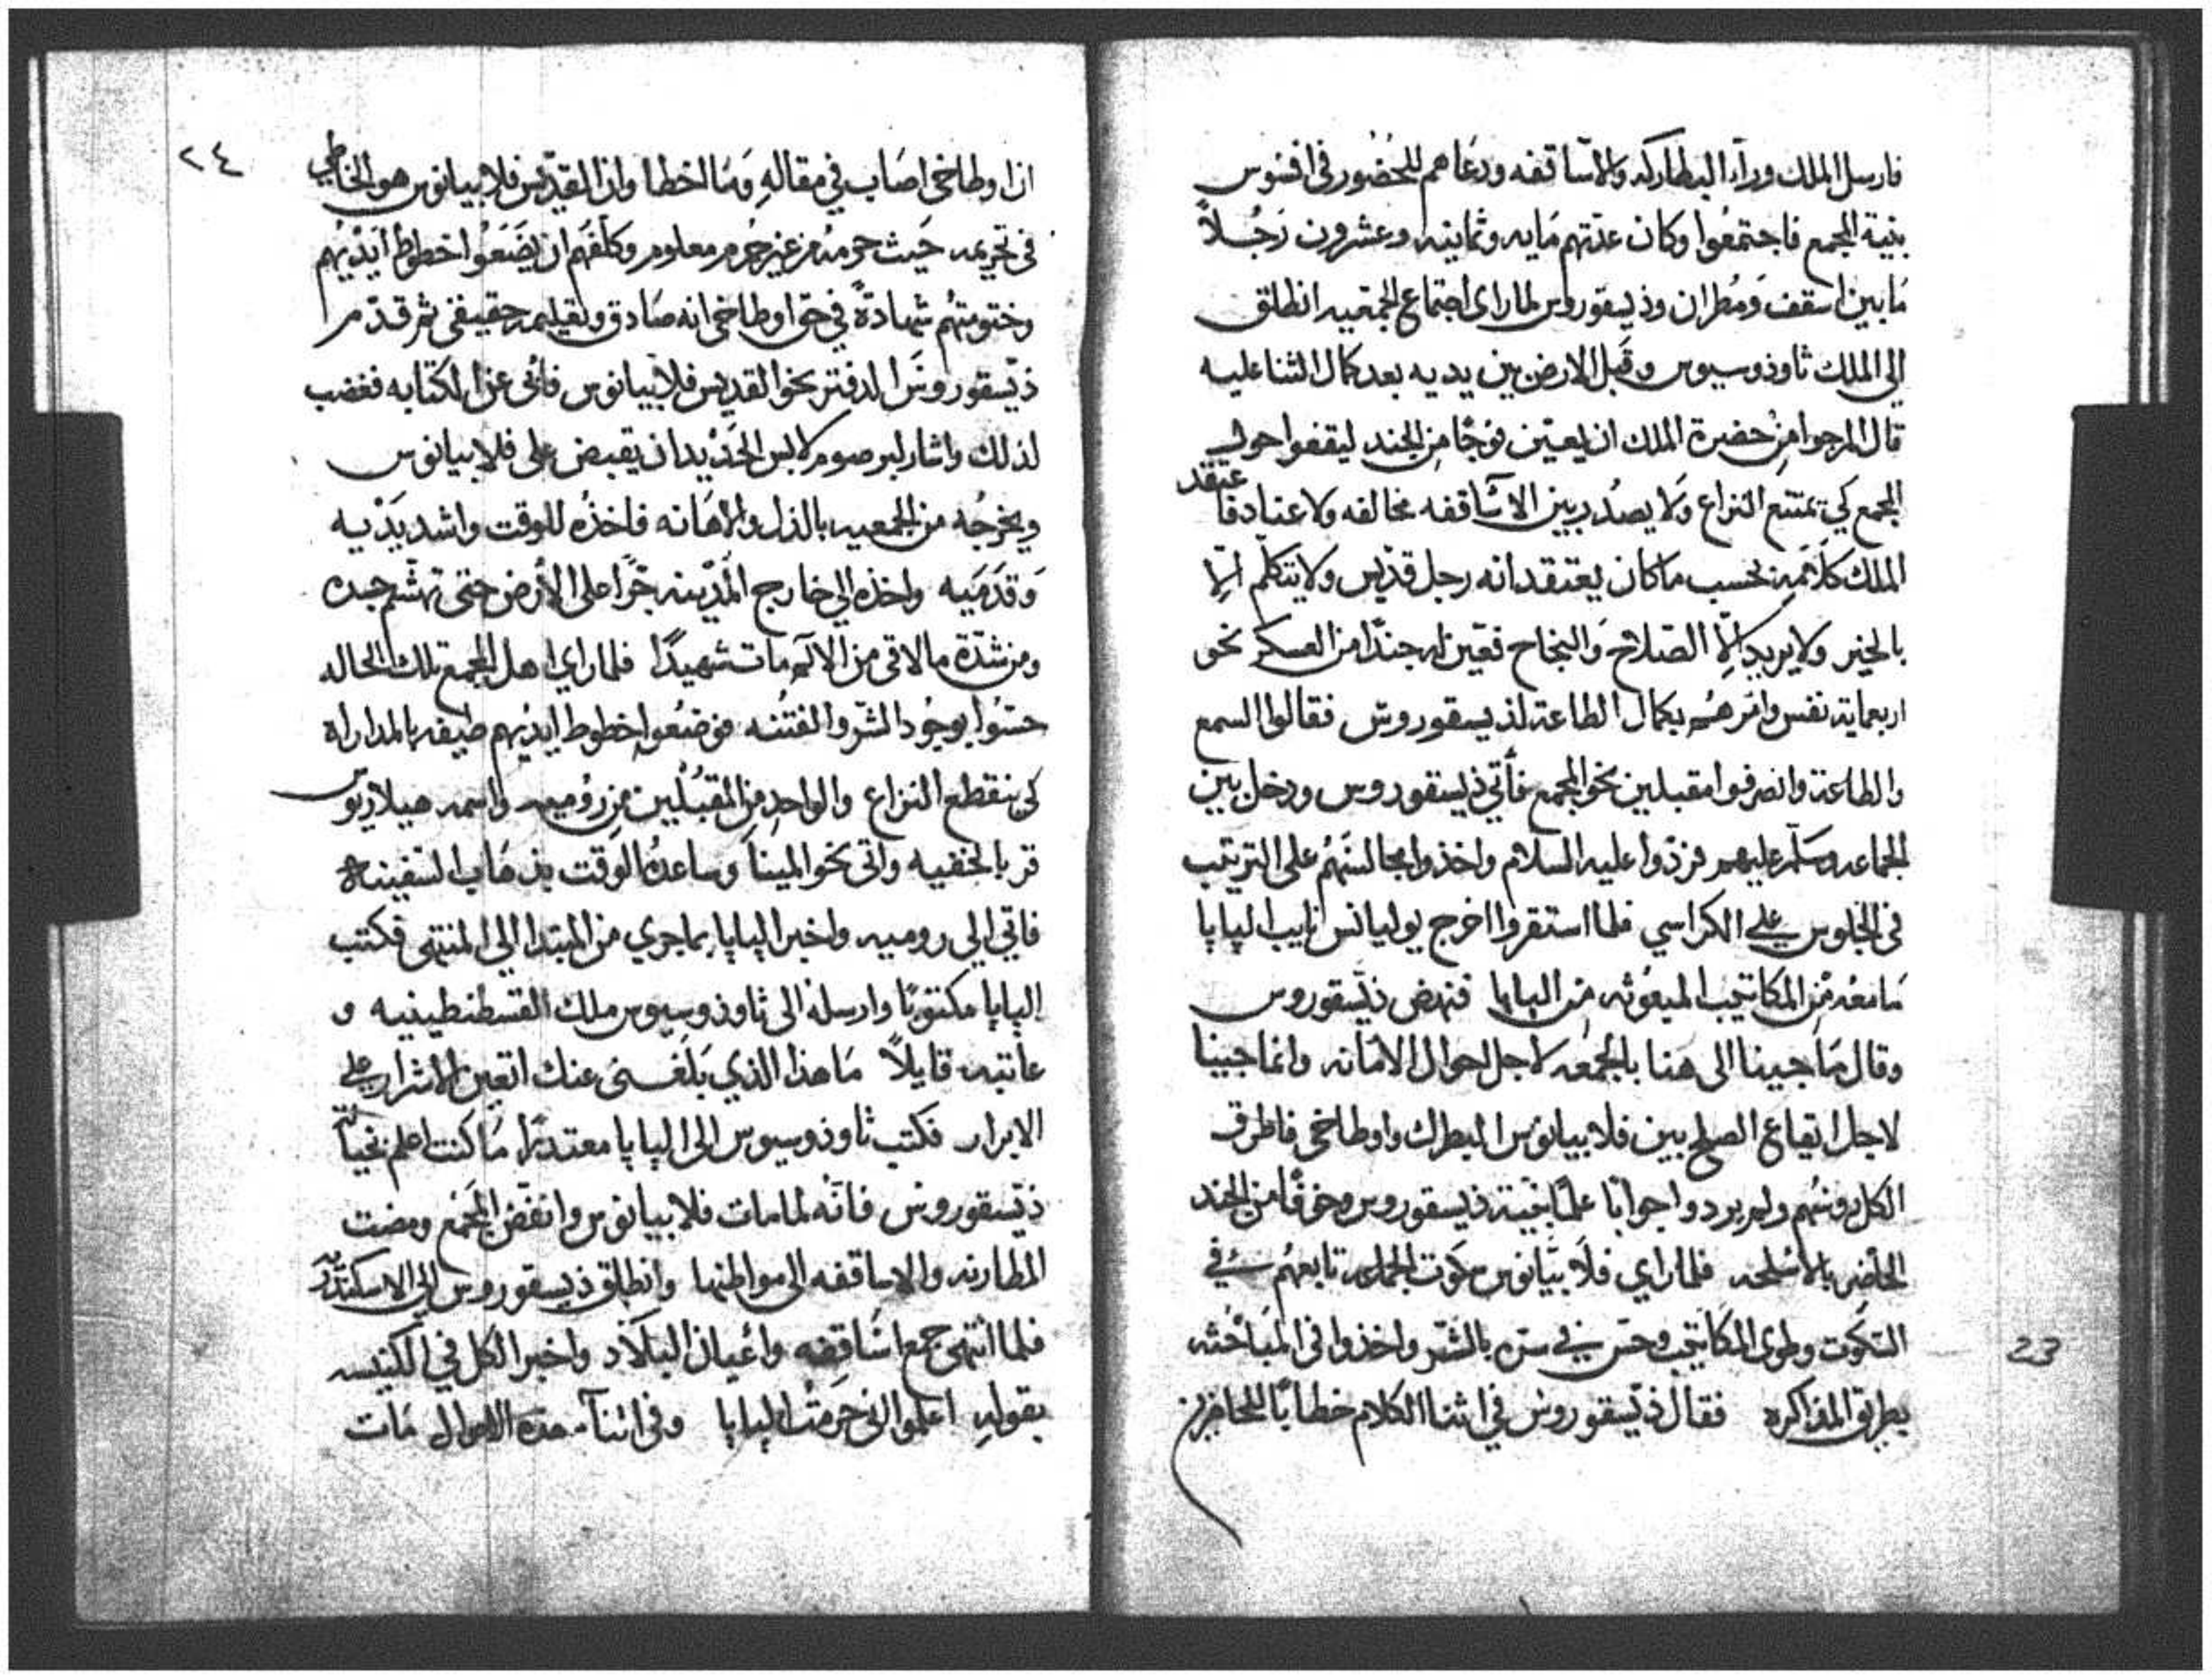 فارسل الملك ورآء البطاركه والاساقفه ودعاهم للحضور في افسوس
بنية المجمع فاجتمعوا وكان عدتهم مايه وثمانيه وعشرون رَجُلاً
مَا بين اسقف ومُطران وذيسقوروس لما راى اجتماع الجمعيه انطلق
الى الملك ثاوذوسيوس وقبل الارض بين يديه بعد كمال الثنا عليه
قال المرجوا من حضرة الملك ان يعين فوجًا من الجند ليقفوا حول
المجمع كي يمتنع النزاع ولا يصدُر بين الاساقفه مخالفه ولا عناد فاعتقد
الملك كلامه بحسب ما كان يعتقد انه رجل قديس ولا يتكلم الّا
بالخير ولا يريد الّا الصلاح والنجاح فعين له جندًا من العسكر نحو
اربعماية نفس وامرهم بكمال الطاعة لذيسقوروس فقالوا السمع
والطاعة وانصرفوا مقبلين نحو المجمع فأتي ذيسقوروس ودخل بين
الجماعه وسلم عليهم فردّوا عليه السلام واخذوا مجالسهُم على الترتيب
في الجلوس على الكراسي فلما استقروا اخرج يوليانس نايب الپاپا
مَا معه من المكاتيب المبعوثه من الپاپا فنهض ذيسقوروس
وقال مَا جينا الى هنا بالجمعه لاجل احوال الامانه وانما جينا
لاجل ايقاع الصلح بين فلابيانوس البطرك واوطاخي فاطرق
الكل رؤسهُم ولم يردوا جوابًا علمًا بنية ذيسقوروس وخوفًا من الجند
الحاضر بالاسلحه فلما راي فلابيانوس سكوت الجماعه تابعهُم في
السكوت وطوى المكاتيب وحس في سره بالشر واخذوا في المبَاحثه
بطريق المذاكره فقال ذيسقوروس في اثنا الكلام خطابًا للحاضرين
23
٢٤
ان اوطاخي اصَاب في مقالهِ ومَا اخطا وان القديس فلابيانوس هو الخاطي
في تحريمه حيث حرمه من غير جُرم معلوم وكلفهم ان يضَعُوا خطوط ايديهم
وختومهُم شهادةً في حق اوطاخي انه صَادق وتعليمه حقيقي ثم قدّم
ذيسقوروس الدفتر نحو القديس فلابيانوس فابى عن الكتابه فغضب
لذلك واشار لبرصوم لابس الحديد ان يقبض على فلابيانوس
ويخرجُه من الجمعيه بالذل والاهانه فاخذُه للوقت واشد يَدَيه
وَقدَميه واخذه الي خارج المدينه جرًا على الأرض حتى تهشم جسده
ومن شدّة ما لاقى من الالم مات شهيدًا فلما راي اهل المجمع تلك الحاله
حسّوا بوجُود الشر والفتنه فوضعُوا خطوط ايديهم بالمداراه
كي ينقطع النزاع والواحد من المقبلين من رُوميه واسمه هيلاريوس
فر بالخفيه واتى نحو المينا وساعدُه الوقت بذهَاب السفينه
فاتي الي روميه واخبر الپاپا بما جري من المبتدا الي المنتهى فكتب
الپاپا مكتوبًا وارسله الى ثاوذوسيوس ملك القسطنطينيه و
عاتبه قايلاً مَا هذا الذي بَلغني عنك اتعين الاشرار على
الابرار فكتب ثاوذوسيوس الى الپاپا معتذرًا مَا كنت اعلم بخيانة
ذيسقوروس فانه لما مات فلابيانوس وانفض المجمع ومضت
المطارنه والاساقفه الى مواطنها وانطلق ذيسقوروس الي الاسكندريه
فلما انتهى جمع اسَاقفه واعيان البلاد واخبر الكل في الكنيسه
بقوله اعلموا اني حرمت الپاپا وفي اثنآء هذه الاحوال مَات